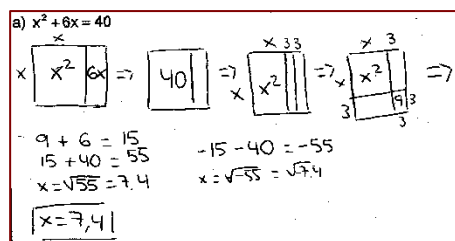 a) x² + 6x = 40
x x 3 3 x 3
x x² 6x => 40 => x x² => x x² =>
3 9 3
3
9 + 6 = 15
15 + 40 = 55
x = √55 = 7.4
-15 - 40 = -55
x = √-55 = √7.4
x = 7,4